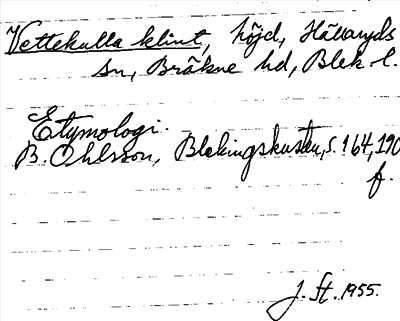 Vettekulla klint, höjd, Hällaryds
sn, Bräkne hd, Blek l.
Etymologi.
B. Ohlsson, Blekingskusten, s. 164, 190
f.
J. St. 1955.